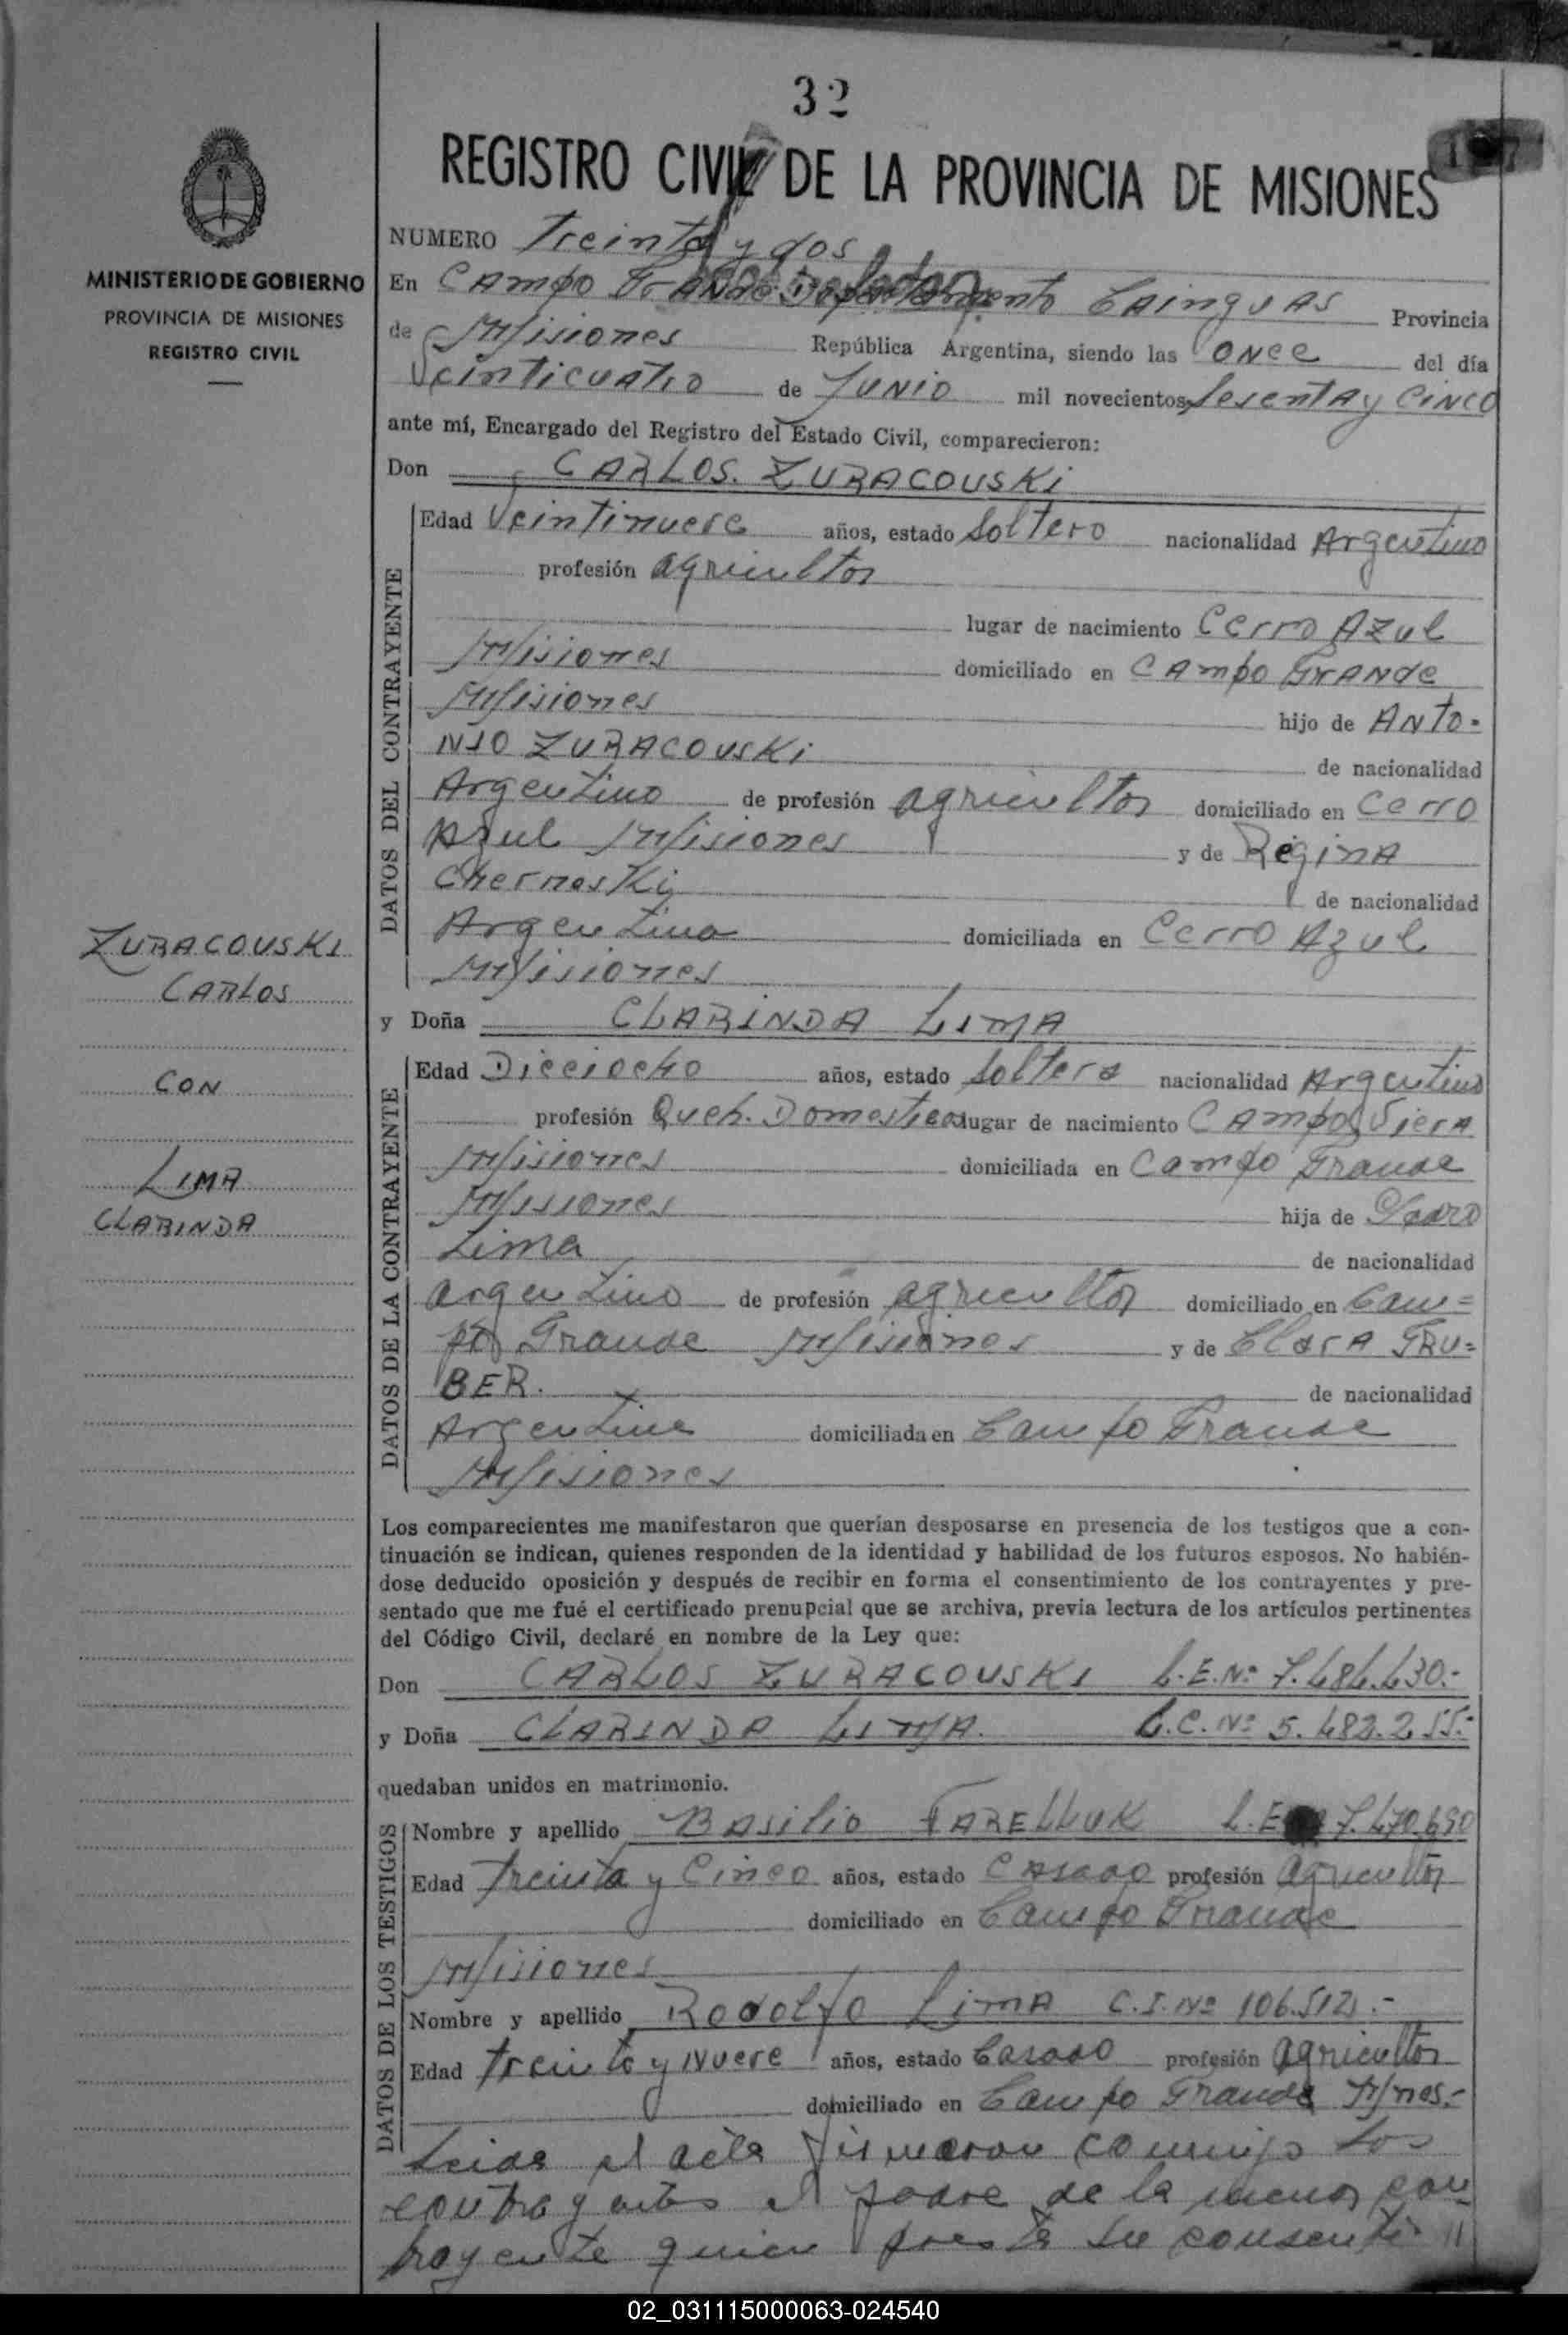 32
REGISTRO CIVIL DE LA PROVINCIA DE MISIONES
MINISTERIO DE GOBIERNO
PROVINCIA DE MISIONES
REGISTRO CIVIL
NUMERO Treinta y dos
En CAMPO GRANDE Departamento CAINGUAS Provincia
de Misiones República Argentina, siendo las ONCE del día
Veinticuatro de JUNIO mil novecientos SesentA y CINCO
ante mí, Encargado del Registro del Estado Civil, comparecieron:
Don CARLOS. ZURACOUSKi
DATOS DEL CONTRAYENTE
Edad Veintinueve años, estado Soltero nacionalidad Argentino
profesión agricultor
lugar de nacimiento Cerro AZul
Misiones domiciliado en CAmpo GRANde
Misiones hijo de ANTO=
NIO ZURACOUSKi de nacionalidad
Argentino de profesión agricultor domiciliado en Cerro
Azul Misiones y de ReginA
Chernoski de nacionalidad
Argentina domiciliada en Cerro Azul
Misiones
y Doña CLARINDA LIMA
DATOS DE LA CONTRAYENTE
Edad Dieciocho años, estado Soltera nacionalidad Argentina
profesión Queh. Domesticos lugar de nacimiento CAmpo VierA
Misiones domiciliada en Campo Grande
Misiones hija de Pedro
Lima de nacionalidad
argentino de profesión agricultor domiciliado en Cam=
po Grande Misiones y de ClarA GRU=
BER. de nacionalidad
Argentina domiciliada en Campo Grande
Misiones
ZURACOUSKI
CARLOS
CON
LIMA
CLARINDA
Los comparecientes me manifestaron que querían desposarse en presencia de los testigos que a con-
tinuación se indican, quienes responden de la identidad y habilidad de los futuros esposos. No habién-
dose deducido oposición y después de recibir en forma el consentimiento de los contrayentes y pre-
sentado que me fué el certificado prenupcial que se archiva, previa lectura de los artículos pertinentes
del Código Civil, declaré en nombre de la Ley que:
Don CARLOS ZURACOUSKI L.E.Nº 7.484.430.-
y Doña CLARINDA LIMA. L.C.Nº 5.482.255.-
quedaban unidos en matrimonio.
DATOS DE LOS TESTIGOS
Nombre y apellido BAsilio TARELLUK L.E 7.470.690
Edad Treinta y Cinco años, estado CAsado profesión agricultor
domiciliado en Campo Grande
Misiones
Nombre y apellido Rodolfo LimA C.I.Nº 106.512.-
Edad treinta y Nueve años, estado Casado profesión agricultor
domiciliado en Campo Grande M/nes.-
Leida el acta firmaron conmigo los
contrayentes el padre de la menor con
trayente quien presta su consenti
02_031115000063-024540